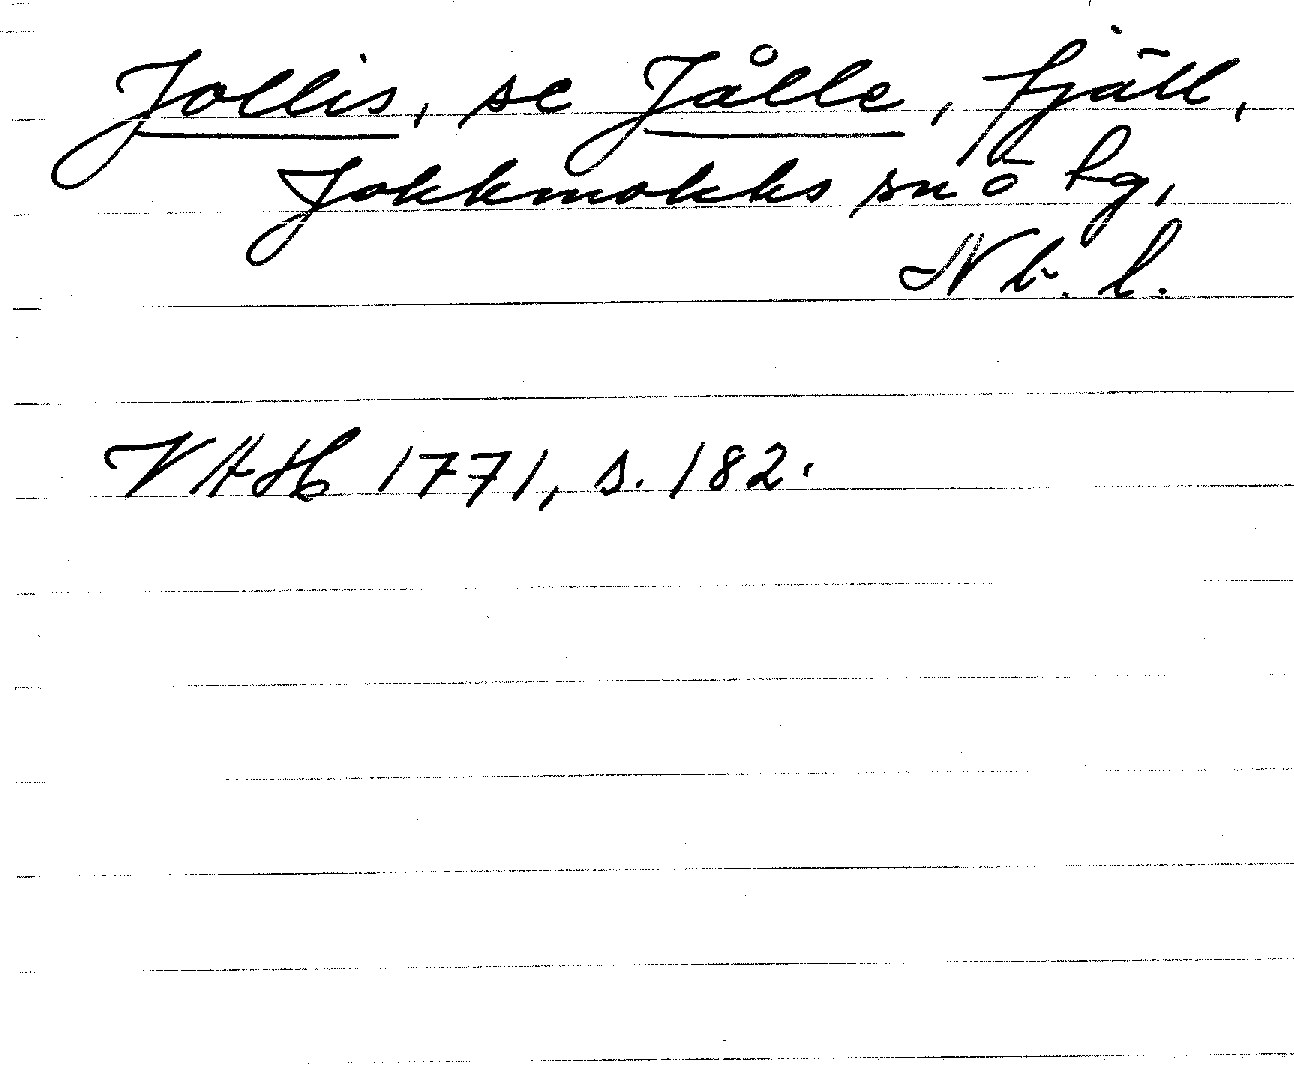 Jollis, se Jålle, fjäll,
Jokkmokks sn o hg,
Nb. l.
VAH 1771, s. 182.